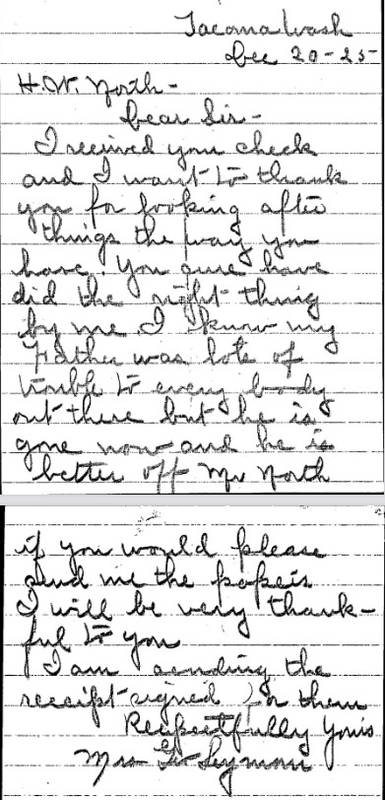 Tacoma Wash
Dec 20-25-
H.W. North-
Dear Sir-
I received you check
and I want to thank
you for looking after
things the way you
have. You sure have
did the right thing
by me. I know my
Father was lots of
trouble to every body
out there but he is
gone now and he is
better off Mr North
if you would please
send me the papers
I will be very thank-
ful to you
I am sending the
receipt signed for them
Respectfully Yours
Mrs Seymour